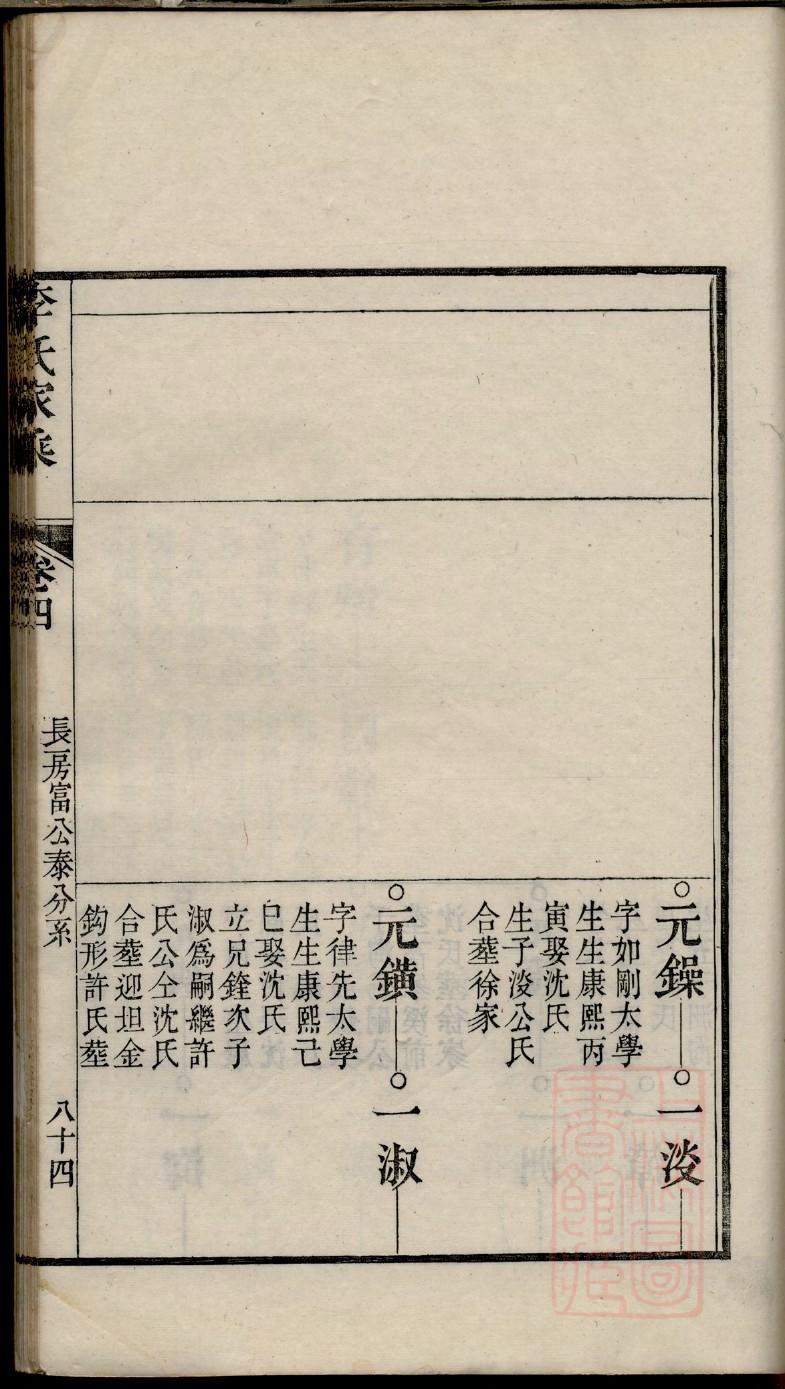 元鐰
一㳘
字如剛太學
生生康熙丙
寅娶沈氏
生子㳘公氏
合塟徐家
元鐄
一淑
字律先太學
生生康熙己
巳娶沈氏
立兄鍷次子
淑爲嗣繼許
氏公仝沈氏
合塟迎坦金
鈎形許氏塟
李氏家乘
卷四
長房富公泰分系
八十四